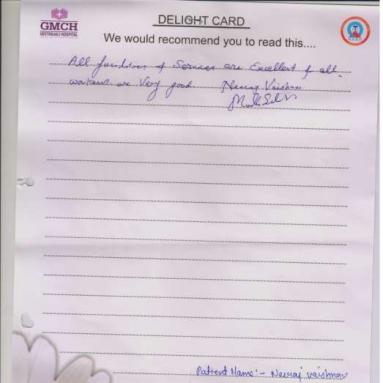 GMCH
DELIGHT CARD
We would recommend you to read this....
All of Services are Excellent & all
workers are Very good Neeraj Vaishnav
Patient Name:- Neeraj vaishnav